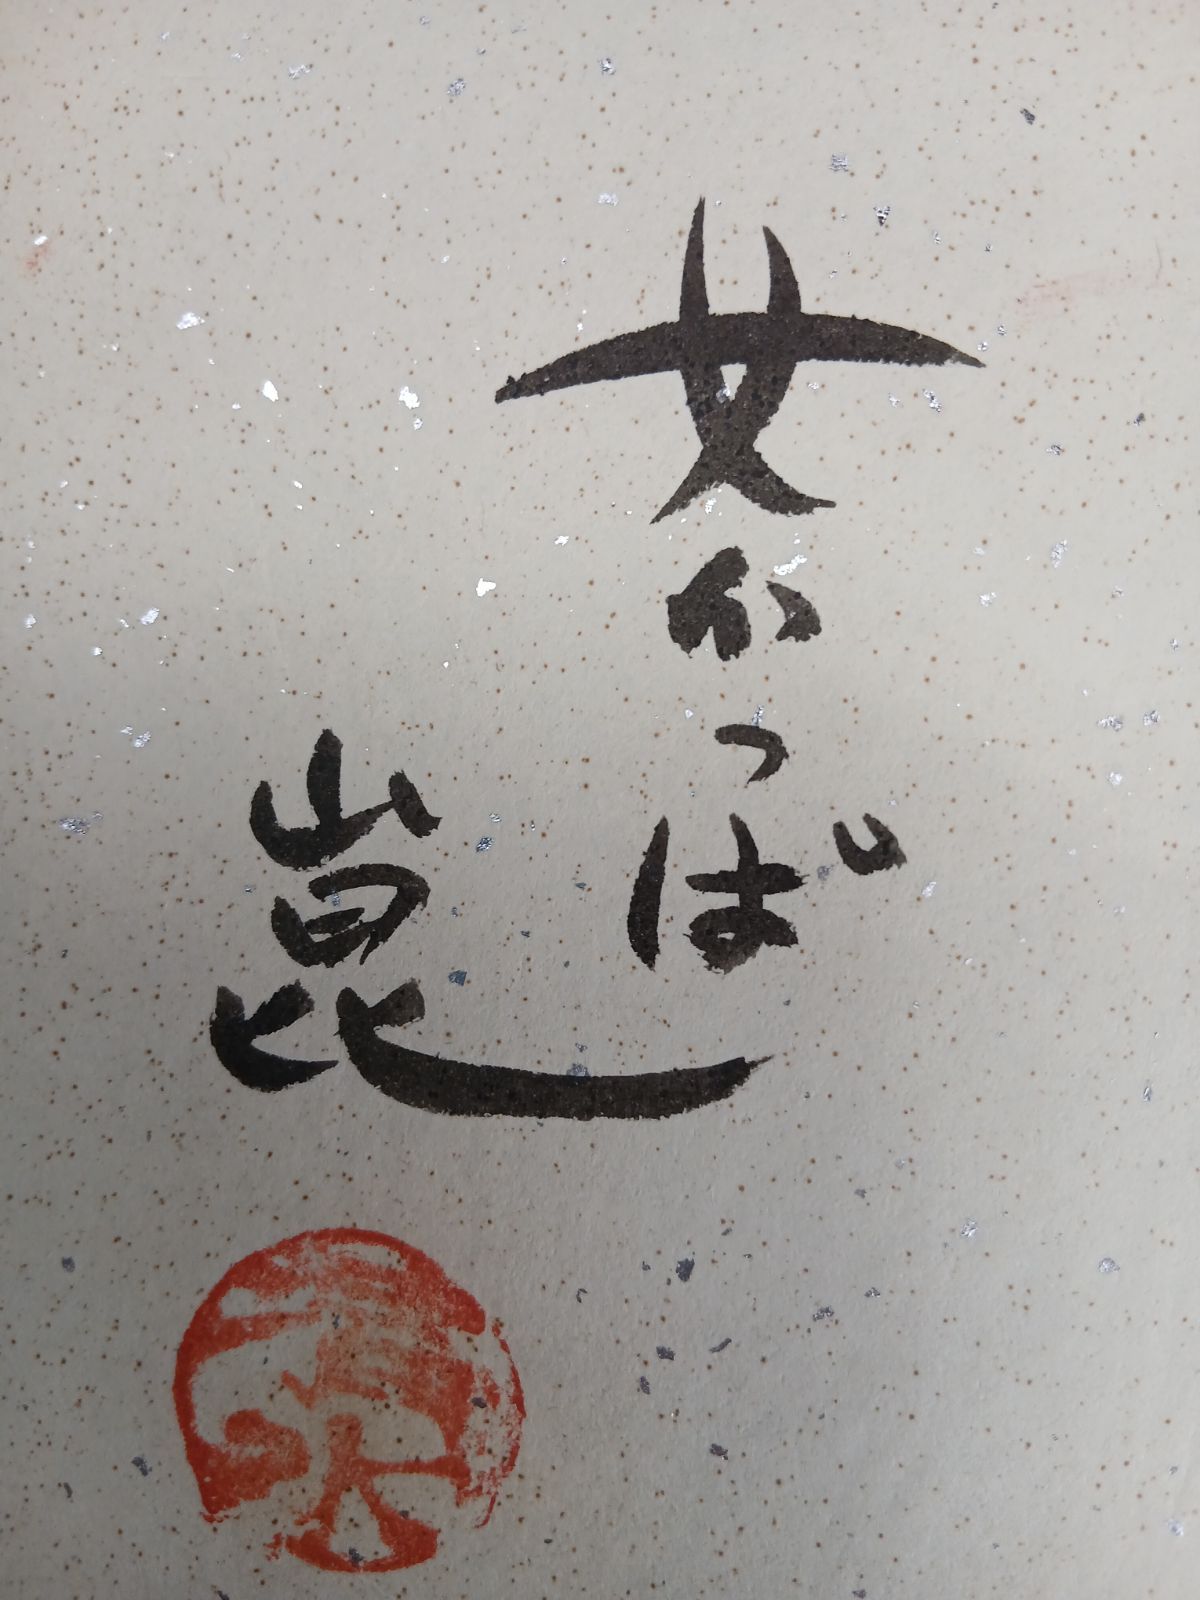 女かっぱ
崑